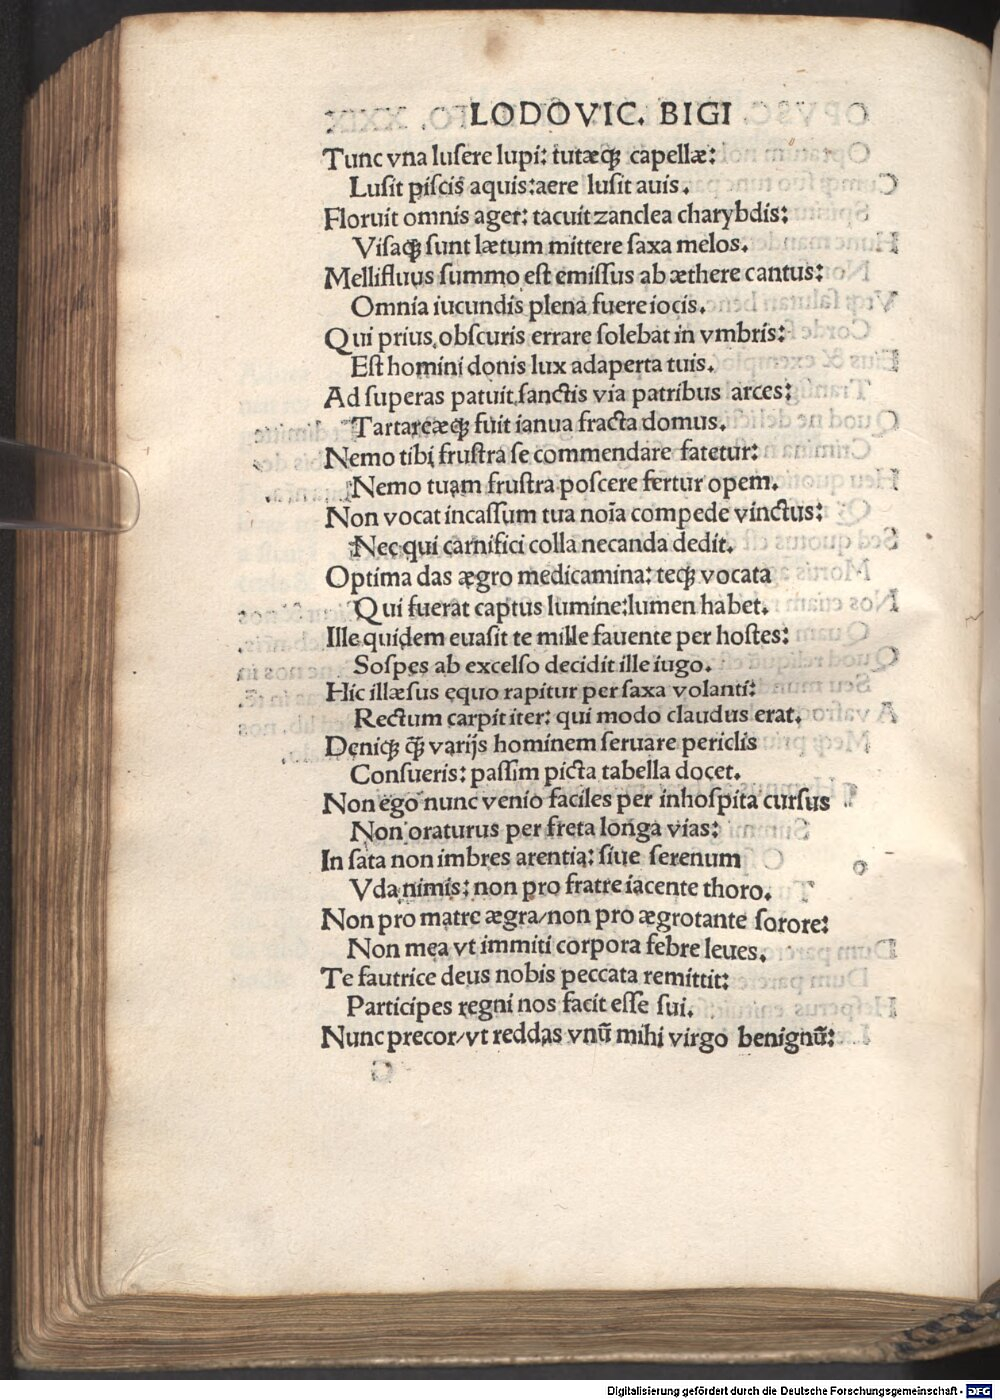 LODOVIC. BIGI
Tunc vna lusere lupi: tutæq₃ capellæ:
Lusit piscis aquis: aere lusit auis.
Floruit omnis ager: tacuit zanclea charybdis:
Visaq₃ sunt lætum mittere saxa melos.
Mellifluus summo est emissus ab æthere cantus:
Omnia iucundis plena fuere iocis.
Qui prius obscuris errare solebat in vmbris:
Est homini donis lux adaperta tuis.
Ad superas patuit sanctis via patribus arces:
Tartareæq₃ fuit ianua fracta domus.
Nemo tibi frustra se commendare fatetur:
Nemo tuam frustra poscere fertur opem.
Non vocat incassum tua noīa compede vinctus:
Nec qui carnifici colla necanda dedit.
Optima das ægro medicamina: teq₃ vocata
Qui fuerat captus lumine: lumen habet.
Ille quidem euasit te mille fauente per hostes:
Sospes ab excelso decidit ille iugo.
Hic illæsus equo rapitur per saxa volanti:
Rectum carpit iter: qui modo claudus erat.
Deniq₃ q̄₃ varijs hominem seruare periclis
Consueris: passim picta tabella docet.
Non ego nunc venio faciles per inhospita cursus
Non oraturus per freta longa vias:
In sata non imbres arentia: siue serenum
Vda nimis: non pro fratre iacente thoro.
Non pro matre ægra/non pro ægrotante sorore:
Non mea vt immiti corpora febre leues.
Te fautrice deus nobis peccata remittit:
Participes regni nos facit esse sui.
Nunc precor/vt reddas vnū mihi virgo benignū:
Digitalisierung gefördert durch die Deutsche Forschungsgemeinschaft - DFG